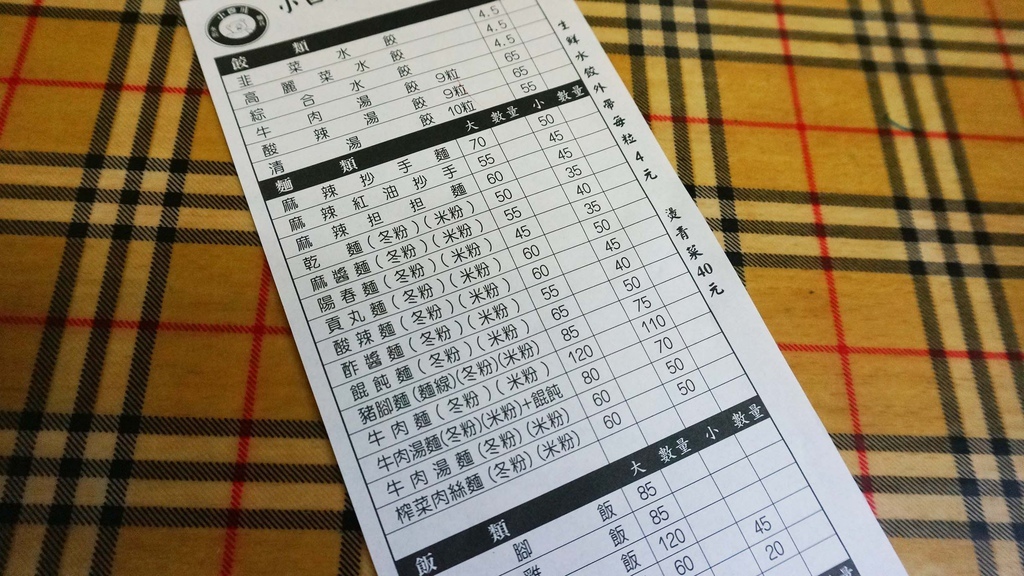 小
餃類
韭菜水餃 4.5
高麗菜水餃 4.5
綜合水餃 4.5
牛肉湯餃 9粒 65
酸辣湯餃 9粒 65
清湯餃 10粒 55
麵類 大 數量 小 數量
麻辣抄手麵 70 50
麻辣紅油抄手 55 45
麻辣担担麵 60 45
乾麵(冬粉)(米粉) 50 35
麻醬麵(冬粉)(米粉) 55 40
陽春麵(冬粉)(米粉) 45 35
貢丸麵(冬粉)(米粉) 60 50
酸辣麵(冬粉)(米粉) 60 45
酢醬麵(冬粉)(米粉) 55 40
餛飩麵(冬粉)(米粉) 65 50
豬腳麵(麵線)(冬粉)(米粉) 85 75
牛肉麵(冬粉)(米粉) 120 110
牛肉湯麵(冬粉)(米粉)+餛飩 80 70
牛肉湯麵(冬粉)(米粉) 60 50
榨菜肉絲麵(冬粉)(米粉) 60 50
飯類 大 數量 小 數量
腳飯 85
飯 85
飯 120 45
60 20
量
生鮮水餃外帶每粒4元
燙青菜40元